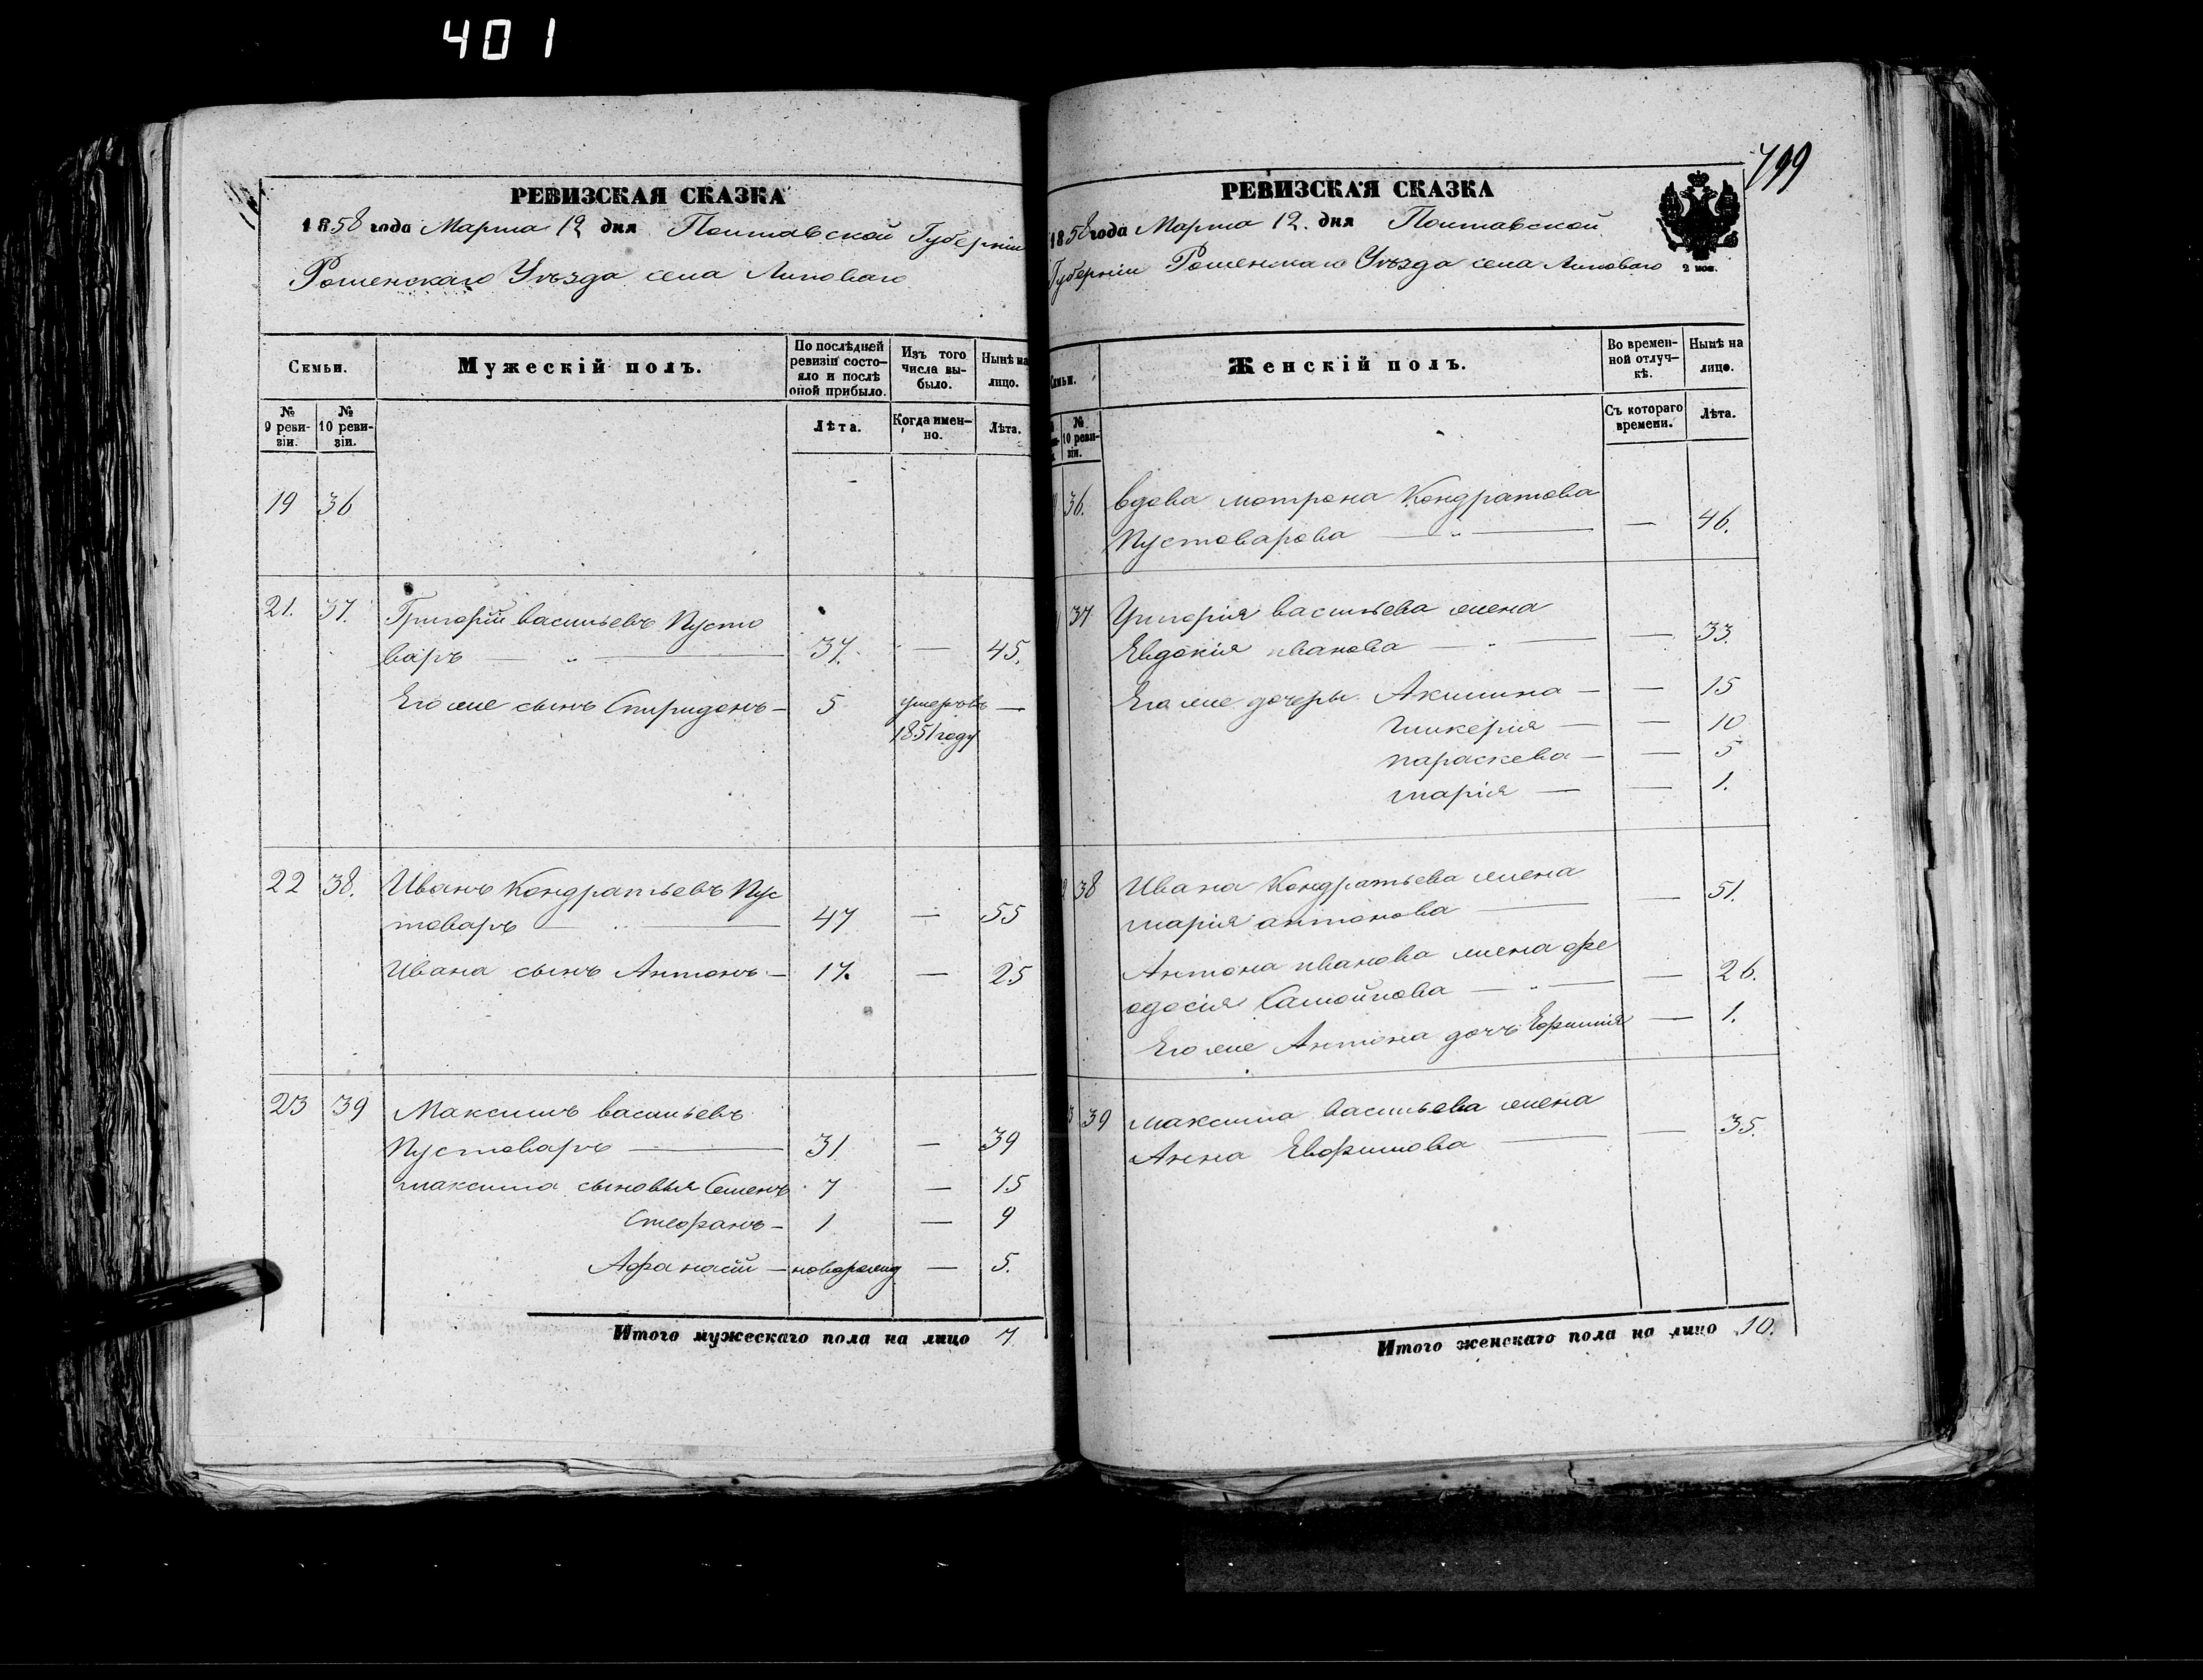 401
РЕВИЗСКАЯ СКАЗКА
1858 года Марта 12 дня Полтавской Губерніи
Роменскаго Уѣзда села Липоваго
Семьи.
Мужескій полъ.
По послѣдней ревизіи состояло и послѣ оной прибыло.
Изъ того числа выбыло.
Нынѣ на лицо.
№ 9 ревизіи.
№ 10 ревизіи.
Лѣта.
Когда именно.
Лѣта.
19 36
21. 37. Григорій васильевъ Пусто
варъ — „ — 37. — 45.
Его же сынъ Спиридонъ — 5 умеръ въ —
1851 году
22 38. Иванъ Кондратьевъ Пус
товаръ — „ — 47 — 55
Ивана сынъ Антонъ — 17. — 25
23 39 Максимъ васильевъ
Пустоваръ — 31 — 39
максима сыновья Семенъ 7 — 15
Стефанъ — 1 — 9
Афанасій — новорожд — 5.
Итого мужескаго пола на лицо 7
799
РЕВИЗСКАЯ СКАЗКА
1858 года Марта 12. дня Полтавской
Губерніи Роменскаго Уѣзда села Липоваго
2 коп.
Семьи.
Женскій полъ.
Во временной отлучкѣ.
Нынѣ на лицо.
№ 10 ревизіи.
Съ котораго времени.
Лѣта.
36. вдова мотрона Кондратова
Пустоварова — „ — — 46.
37 Григорія васильева жена
Евдокія иванова — „ — — 33.
Его же дочеры Акилина — — 15
гликерія — — 10
параскева — — 5
марія — — 1.
38 Ивана Кондратьева жена
марія антонова — — 51.
Антона иванова жена фе
одосія Самойлова — „ — — 26.
Его же Антона дочь Ефимія — 1.
39 максима васильева жена
Анна Евфимова — — 35.
Итого женскаго пола на лицо 10.